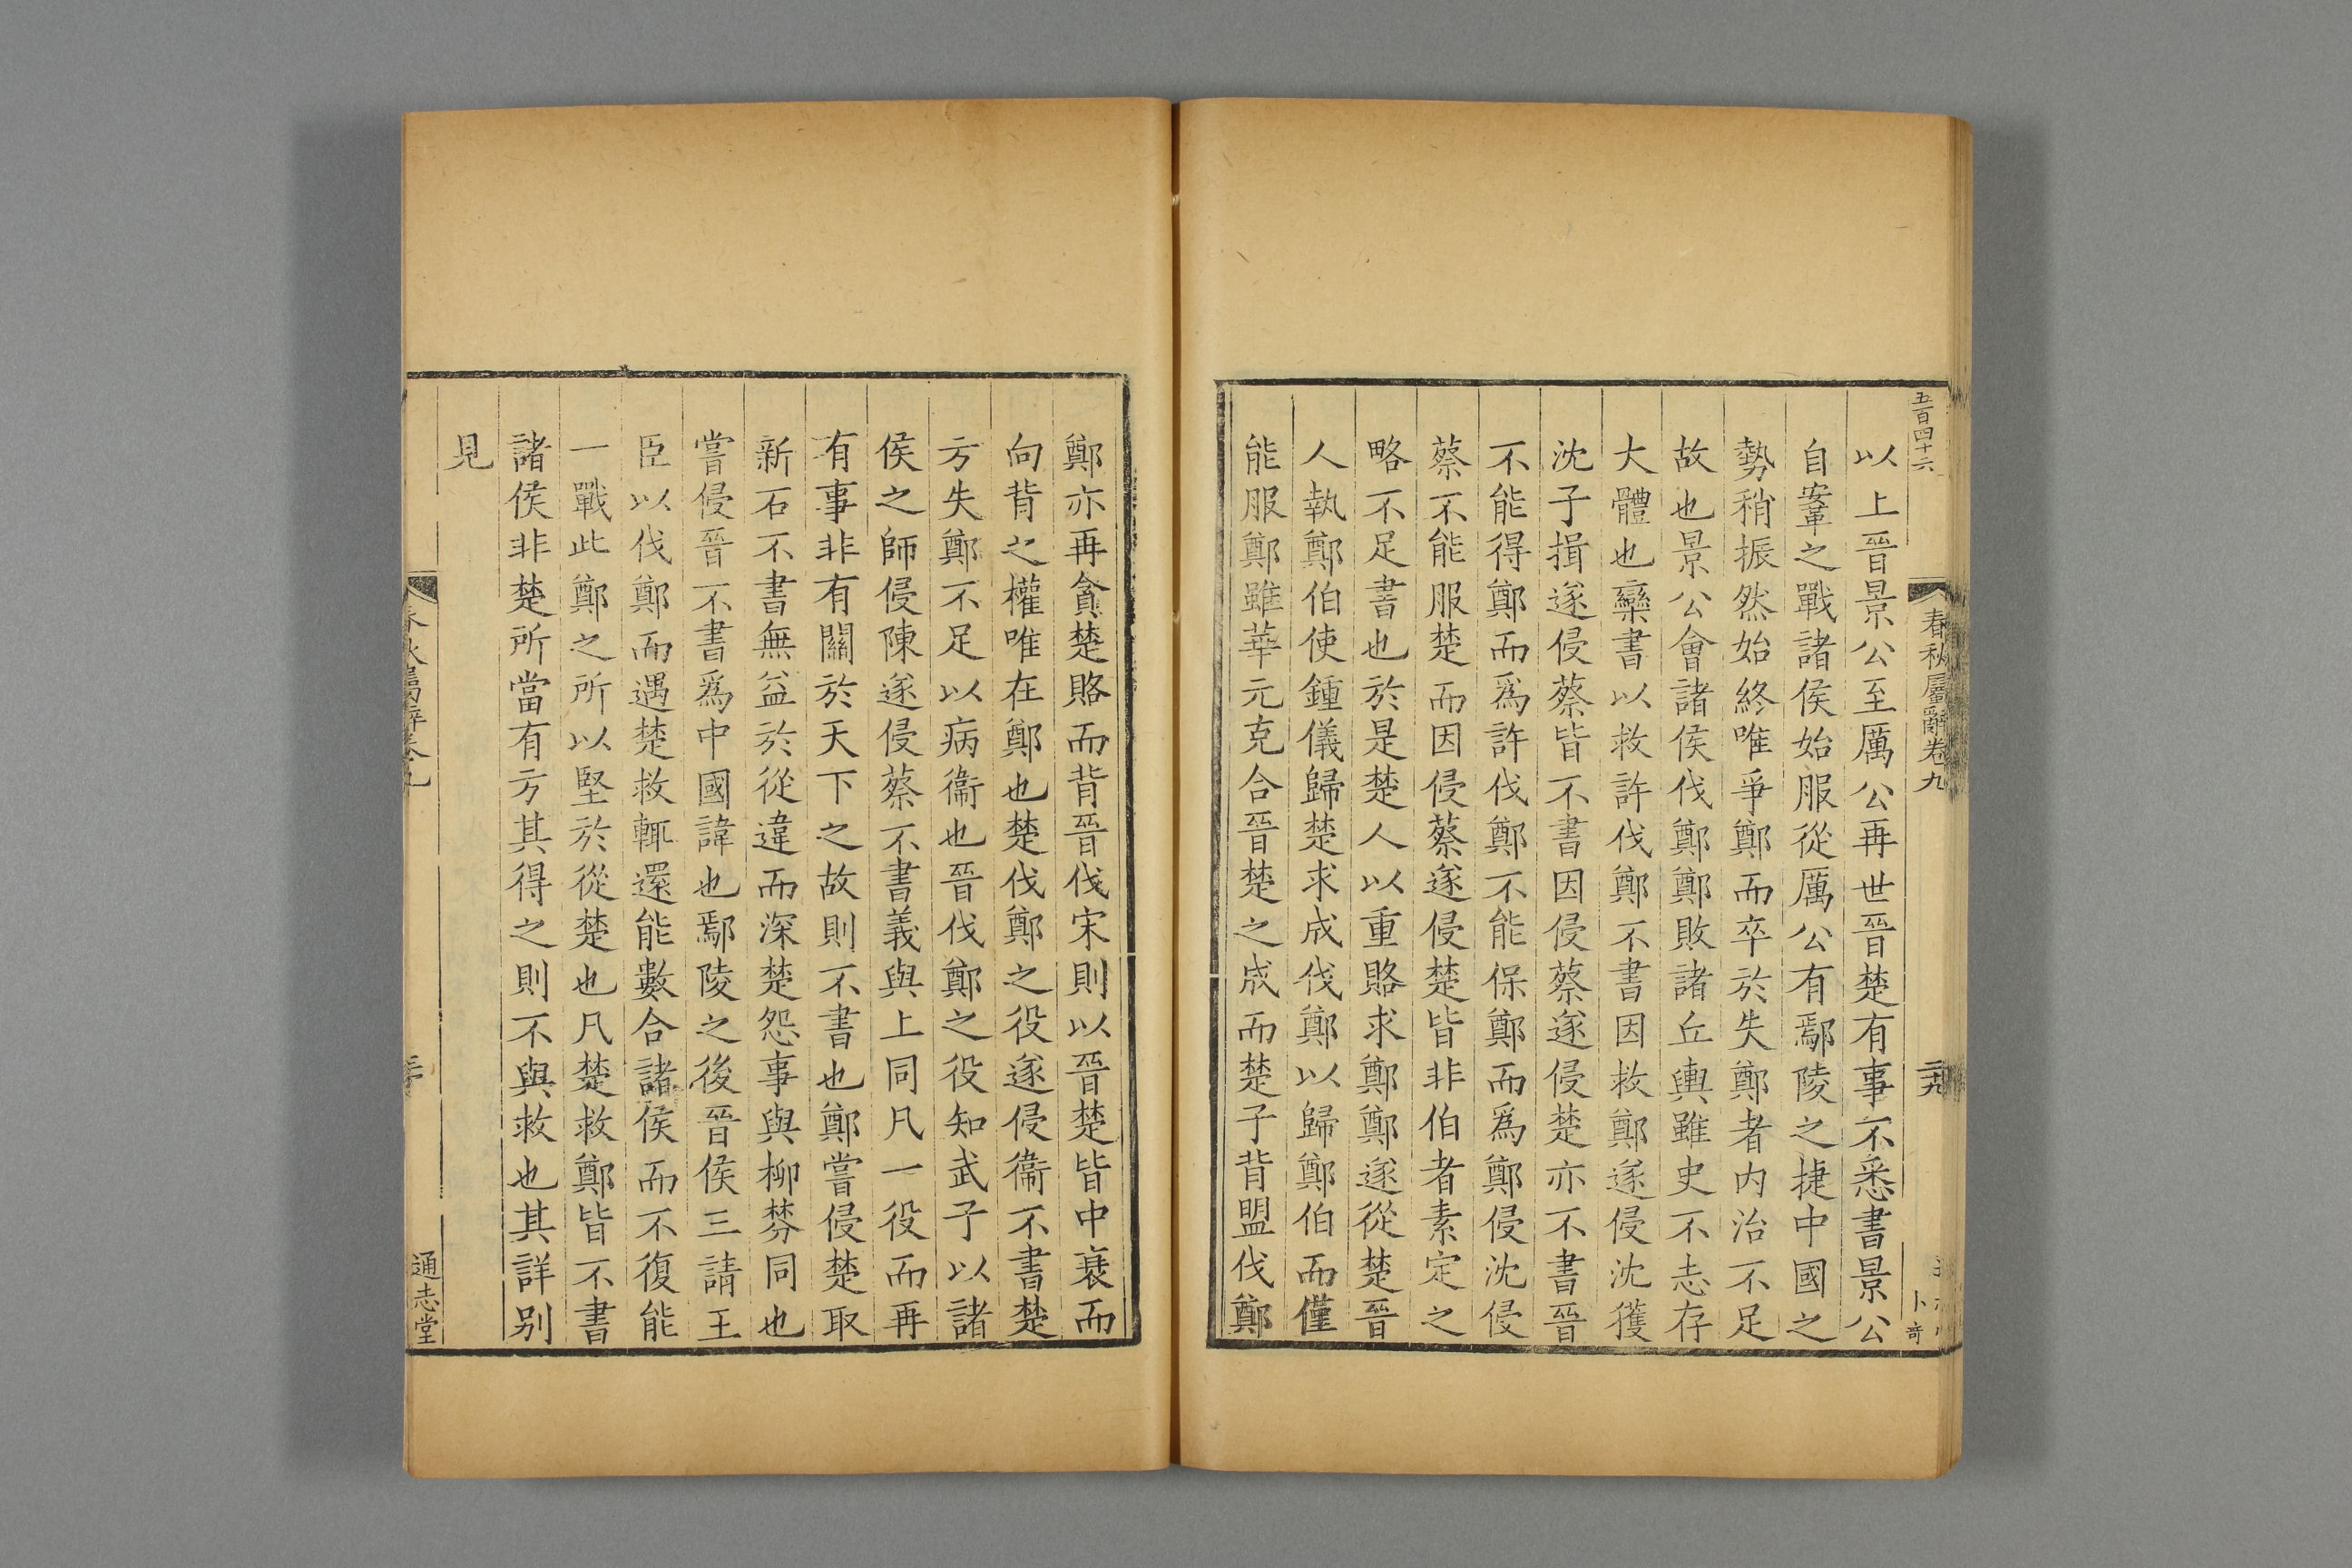 五百四十六
春秋屬辭卷九
卜奇
以上晉景公至厲公再世晉楚有事不悉書景公
自鞌之戰諸侯始服從厲公有鄢陵之捷中國之
勢稍振然始終唯爭鄭而卒於失鄭者内治不足
故也景公會諸侯伐鄭鄭敗諸丘輿雖史不志存
大體也欒書以救許伐鄭不書因救鄭遂侵沈獲
沈子揖遂侵蔡皆不書因侵蔡遂侵楚亦不書晉
不能得鄭而爲許伐鄭不能保鄭而爲鄭侵沈侵
蔡不能服楚而因侵蔡遂侵楚皆非伯者素定之
略不足書也於是楚人以重賂求鄭鄭遂從楚晉
人執鄭伯使鍾儀歸楚求成伐鄭以歸鄭伯而僅
能服鄭雖華元克合晉楚之成而楚子背盟伐鄭
鄭亦再貪楚賂而背晉伐宋則以晉楚皆中衰而
向背之權唯在鄭也楚伐鄭之役遂侵衞不書楚
方失鄭不足以病衞也晉伐鄭之役知武子以諸
侯之師侵陳遂侵蔡不書義與上同凡一役而再
有事非有關於天下之故則不書也鄭嘗侵楚取
新石不書無益於從違而深楚怨事與柳棼同也
嘗侵晉不書爲中國諱也鄢陵之後晉侯三請王
臣以伐鄭而遇楚救輒還能數合諸侯而不復能
一戰此鄭之所以堅於從楚也凡楚救鄭皆不書
諸侯非楚所當有方其得之則不與救也其詳别
見
春秋屬辭卷九
通志堂